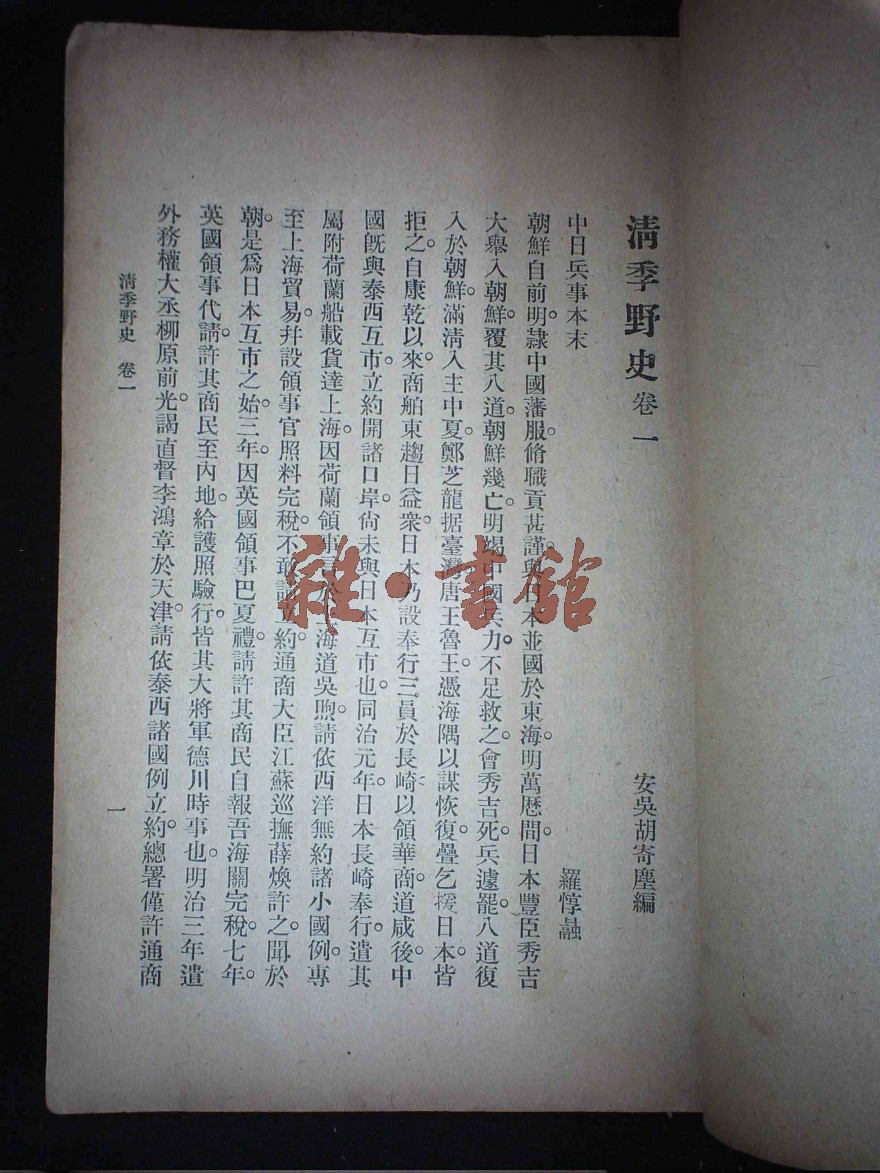 清季野史 卷一
安吳胡寄塵編
中日兵事本末
羅惇融
朝鮮自前明隷中國藩服脩職貢甚謹與日本並國於東海。明萬厯間。日本豐臣秀吉
大舉入朝鮮覆其八道。朝鮮幾亡。明竭中國兵力。不足救之。會秀吉死。兵遽罷。八道復
入於朝鮮。滿淸入主中夏。鄭芝龍据臺灣。唐王魯王。憑海隅以謀恢復。疊乞援日本。皆
拒之。自康乾以來。商舶東趨日益衆。日本乃設奉行三員於長崎以領華商。道咸後。中
國旣與泰西互市。立約開諸口岸。尙未與日本互市也。同治元年。日本長崎奉行。遣其
屬附荷蘭船載貨達上海。因荷蘭領事言於上海道吳煦。請依西洋無約諸小國例。專
至上海貿易。幷設領事官照料完稅。不敢請立約。通商大臣江蘇巡撫薛煥許之。聞於
朝。是爲日本互市之始。三年。因英國領事巴夏禮。請許其商民自報吾海關完稅。七年。
英國領事代請許其商民至內地。給護照驗行。皆其大將軍德川時事也。明治三年遣
外務權大丞柳原前光。謁直督李鴻章於天津。請依泰西諸國例立約。總署僅許通商
清季野史 卷一
一
雜·書館